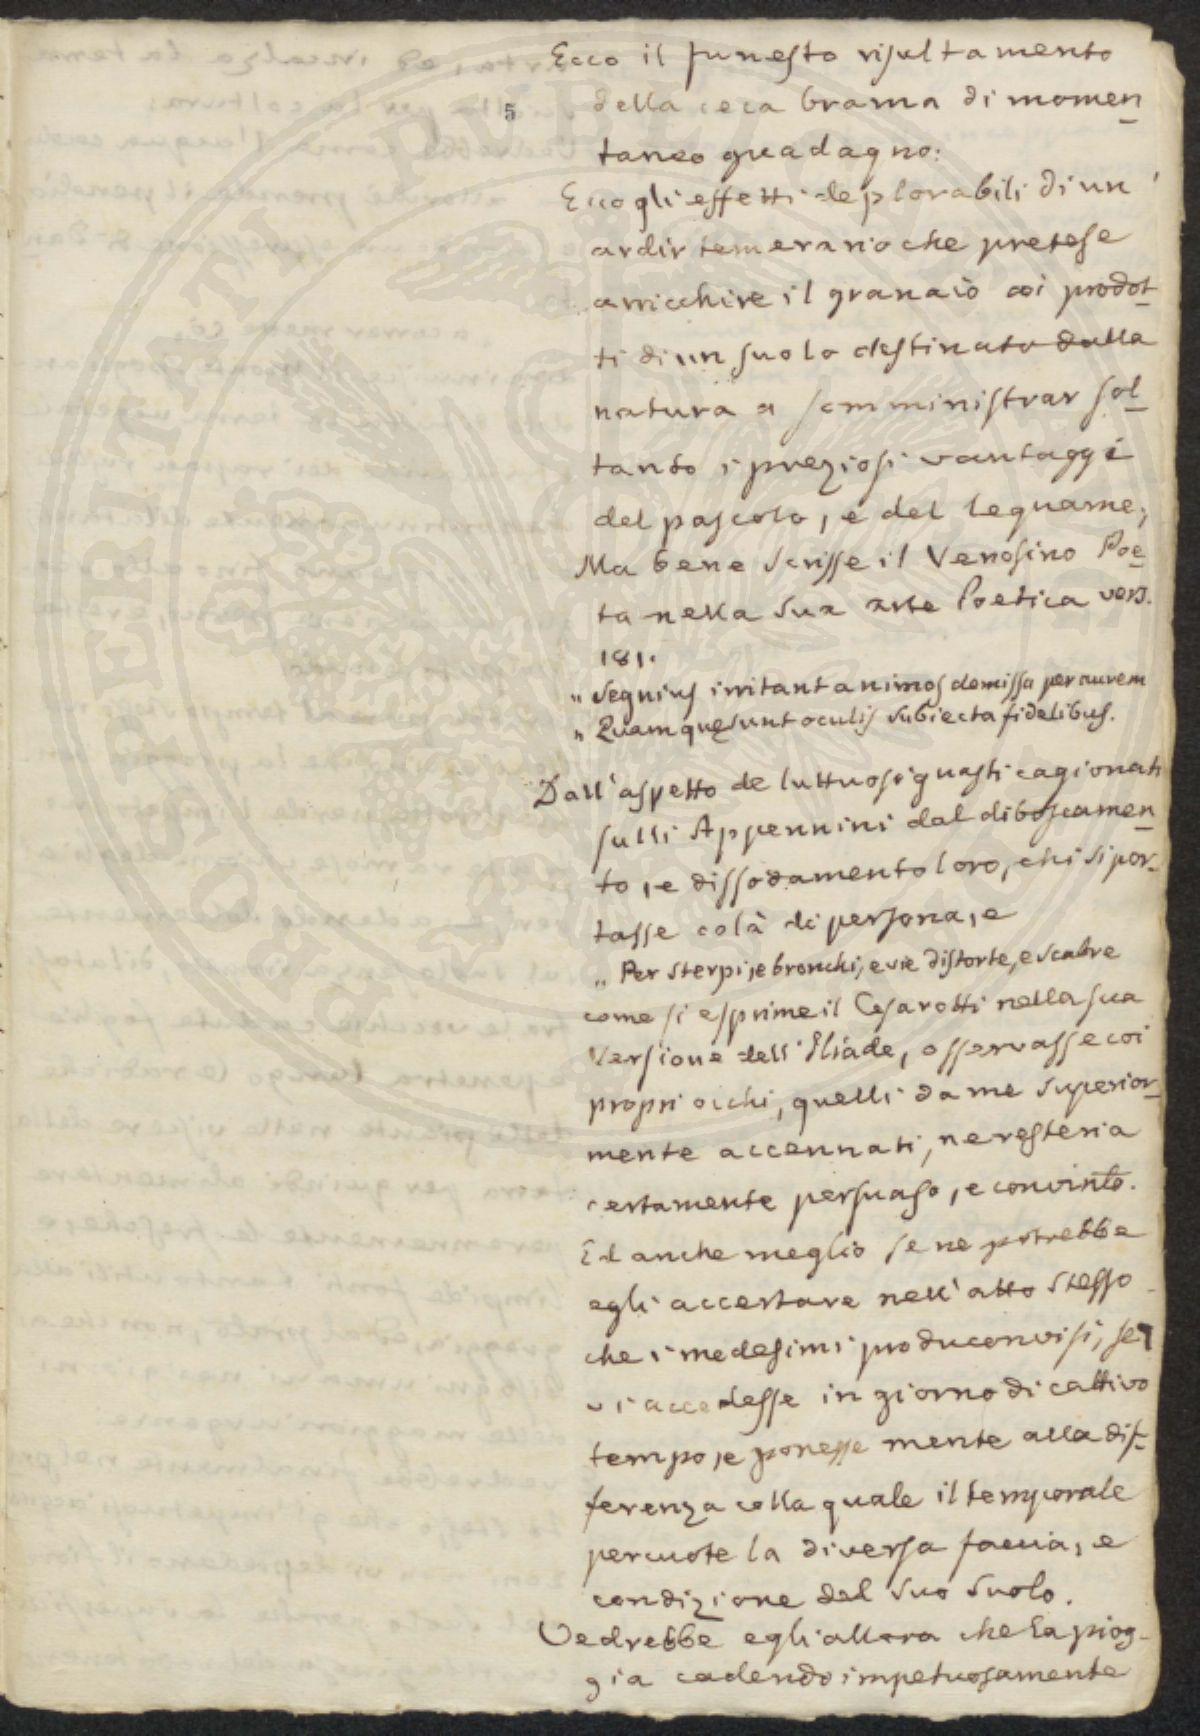 Ecco il funesto risultamento
5 della ceca brama di momen
taneo guadagno:
Ecco gli effetti deplorabili di un'
ardir temerario che pretese
arricchire il granaio coi prodot
ti di un suolo destinato dalla
natura a somministrar sol
tanto i preziosi vantaggi
del pascolo, e del legname;
Ma bene scrisse il Venosino Poe
ta nella sua arte Poetica vers.
181.
" Segnius irritant animos demissa per aurem
" Quam quę sunt oculis subiecta fidelibus.
Dall'aspetto de luttuosi guasti cagionati
sulli Appennini dal diboscamen
to, e dissodamento loro, chi si por
tasse colà di persona, e
" Per sterpi, e bronchi, e vie distorte, e scabre
come si esprime il Cesarotti nella sua
Versione dell'Iliade, osservasse coi
propri occhi, quelli da me superior
mente accennati, ne resteria
certamente persuaso, e convinto.
Ed anche meglio se ne potrebbe
egli accertare nell'atto stesso
che i medesimi produconvisi, se
vi accedesse in giorno di cattivo
tempo, e ponesse mente alla dif
ferenza colla quale il temporale
percuote la diversa faccia, e
condizione del suo suolo.
Vedrebbe egli allora che la piog
gia cadendo impetuosamente
PROPRIETATI PUBLICAE